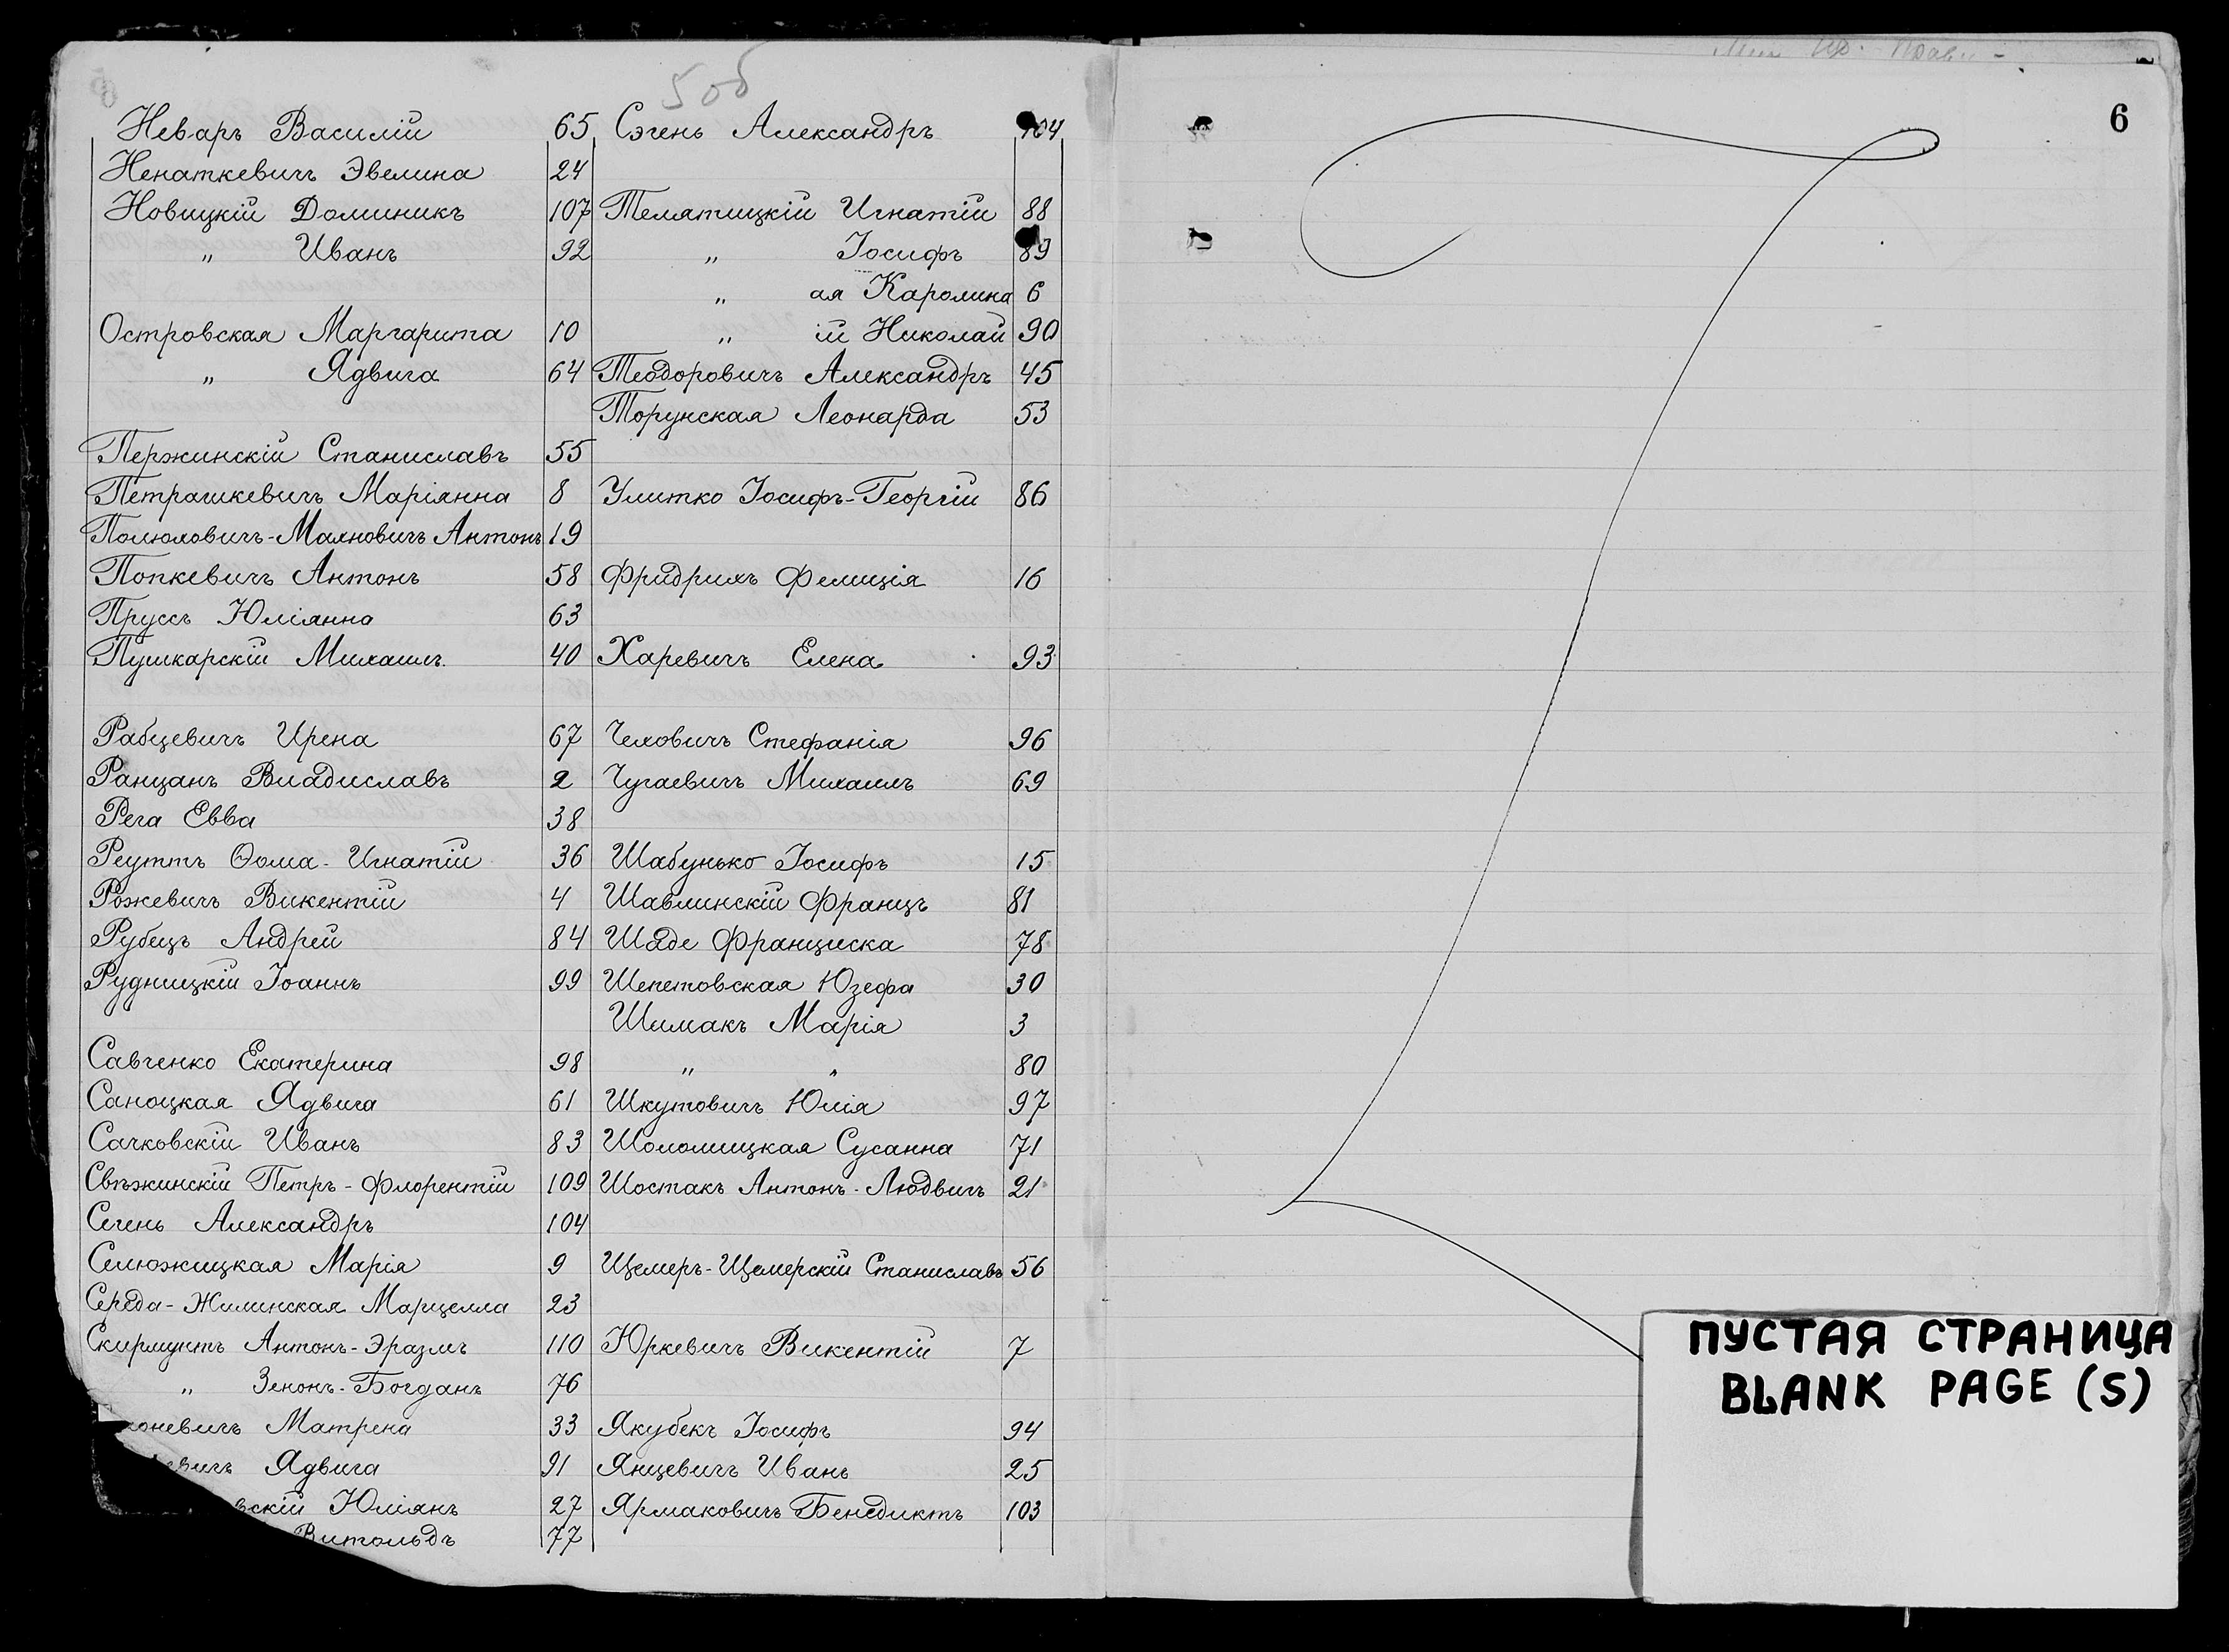 5об
Неваръ Василій 65
Ненаткевичъ Эвелина 24
Новицкій Доминикъ 107
„ Иванъ 92
Островская Маргарита 10
„ Ядвига 64
Пержинскій Станиславъ 55
Петрашкевичъ Маріянна 8
Полюховичъ-Малновичъ Антонъ 19
Попкевичъ Антонъ 58
Пруссъ Юліянна 63
Пушкарскій Михаилъ 40
Рабцевичъ Ирена 67
Ранцанъ Владиславъ 2
Рега Евва 38
Реуттъ Ѳома-Игнатій 36
Рожевичъ Викентій 4
Рубецъ Андрей 84
Рудницкій Іоаннъ 99
Савченко Екатерина 98
Саноцкая Ядвига 61
Сачковскій Иванъ 83
Свѣжинскій Петръ-Флорентій 109
Сегень Александръ 104
Селюжицкая Марія 9
Середа-Жилинская Марцелла 23
Скирмунтъ Антонъ-Эразмъ 110
„ Зенонъ-Богданъ 76
Матрена 33
Ядвига 91
Юліянъ 27
Витольдъ 77
Сэгень Александръ 104
Телятицкій Игнатій 88
„ Іосифъ 89
„ ая Каролина 6
„ ій Николай 90
Теодоровичъ Александръ 45
Торунская Леонарда 53
Улитко Іосифъ-Георгій 86
Фридрихъ Фелиція 16
Харевичъ Елена 93
Чеховичъ Стефанія 96
Чугаевичъ Михаилъ 69
Шабунько Іосифъ 15
Шавлинскій Францъ 81
Шаде Франциска 78
Шепетовская Юзефа 30
Шимакъ Марія 3
„ „ 80
Шкутовичъ Юлія 97
Шоломицкая Сусанна 71
Шостакъ Антонъ-Людвигъ 21
Щемеръ-Щемерскій Станиславъ 56
Юркевичъ Викентій 7
Якубекъ Іосифъ 94
Янцевичъ Иванъ 25
Ярмаковичъ Бенедиктъ 103
6
ПУСТАЯ СТРАНИЦА
BLANK PAGE (S)